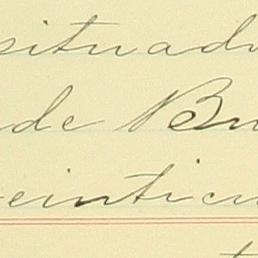 situado
de Bu
veinticu